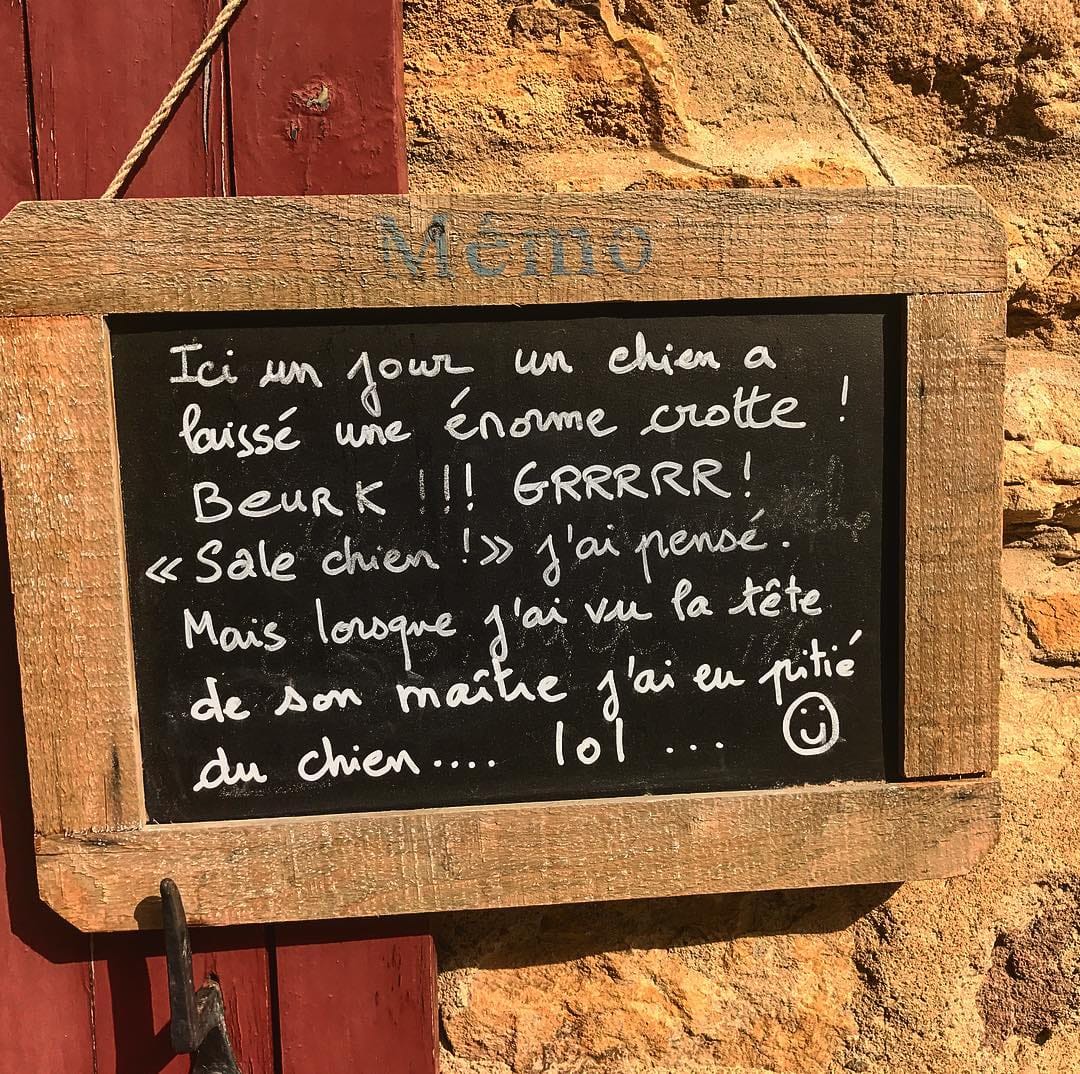 Mémo
Ici un jour un chien a
laissé une énorme crotte !
BEURK !!! GRRRRR !
« Sale chien ! » j'ai pensé.
Mais lorsque j'ai vu la tête
de son maître j'ai eu pitié
du chien.... lol ...